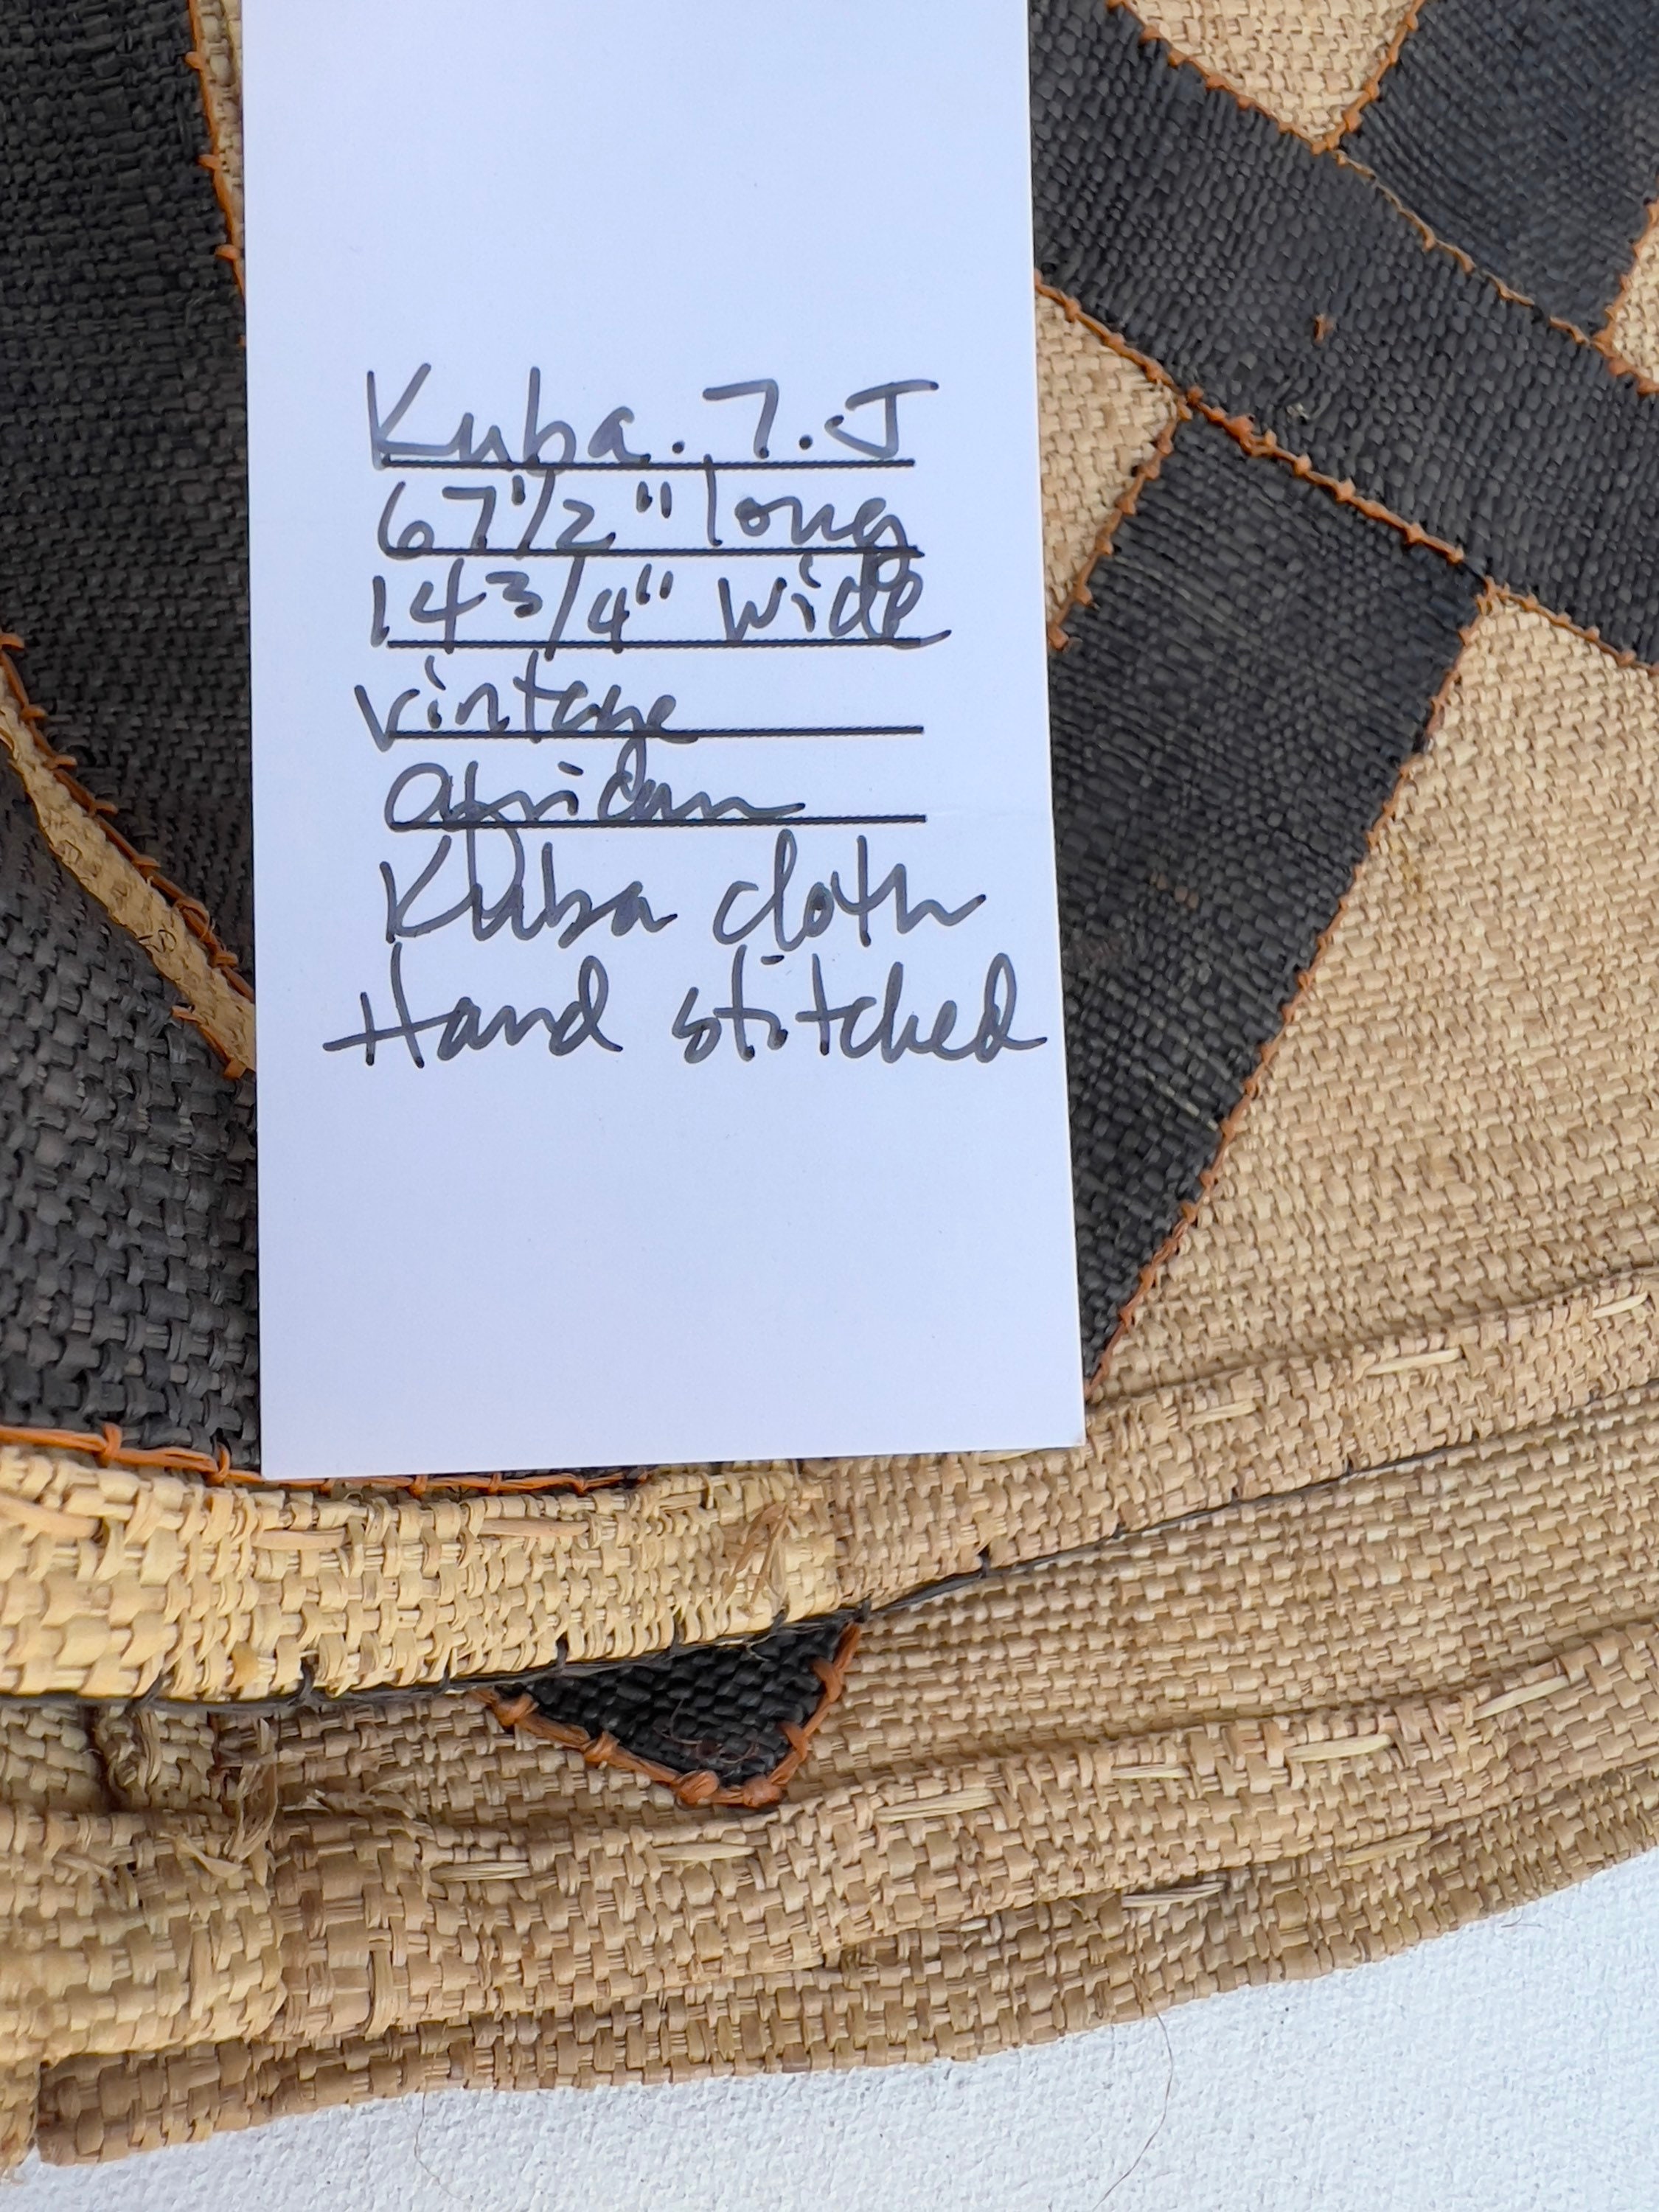 Kuba. 7. J
67 1/2" long
14 3/4" wide
vintage
african
Kuba cloth
Hand stitched